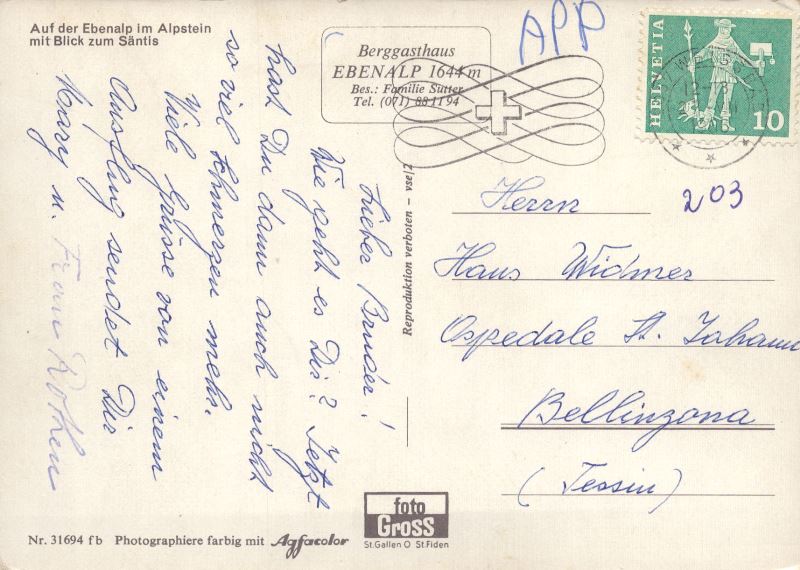 Auf der Ebenalp im Alpstein
mit Blick zum Säntis
Berggasthaus
EBENALP 1644 m
Bes.: Familie Sutter
Tel. (071) 88 11 94
APP
HELVETIA
10
203
Lieber Bruder!
Wie geht es Dir? Jetzt
hast Du dann auch nicht
so viel schmerzen mehr.
Viele Grüsse von einem
Ausflug sendet Dir
Mary u. Franz Rothen
Reproduktion verboten – vse/2
Herrn
Hans Widmer
Ospedale St. Johann
Bellinzona
(Tessin)
Nr. 31694 f b Photographiere farbig mit Agfacolor
foto
Gross
St.Gallen O St.Fiden